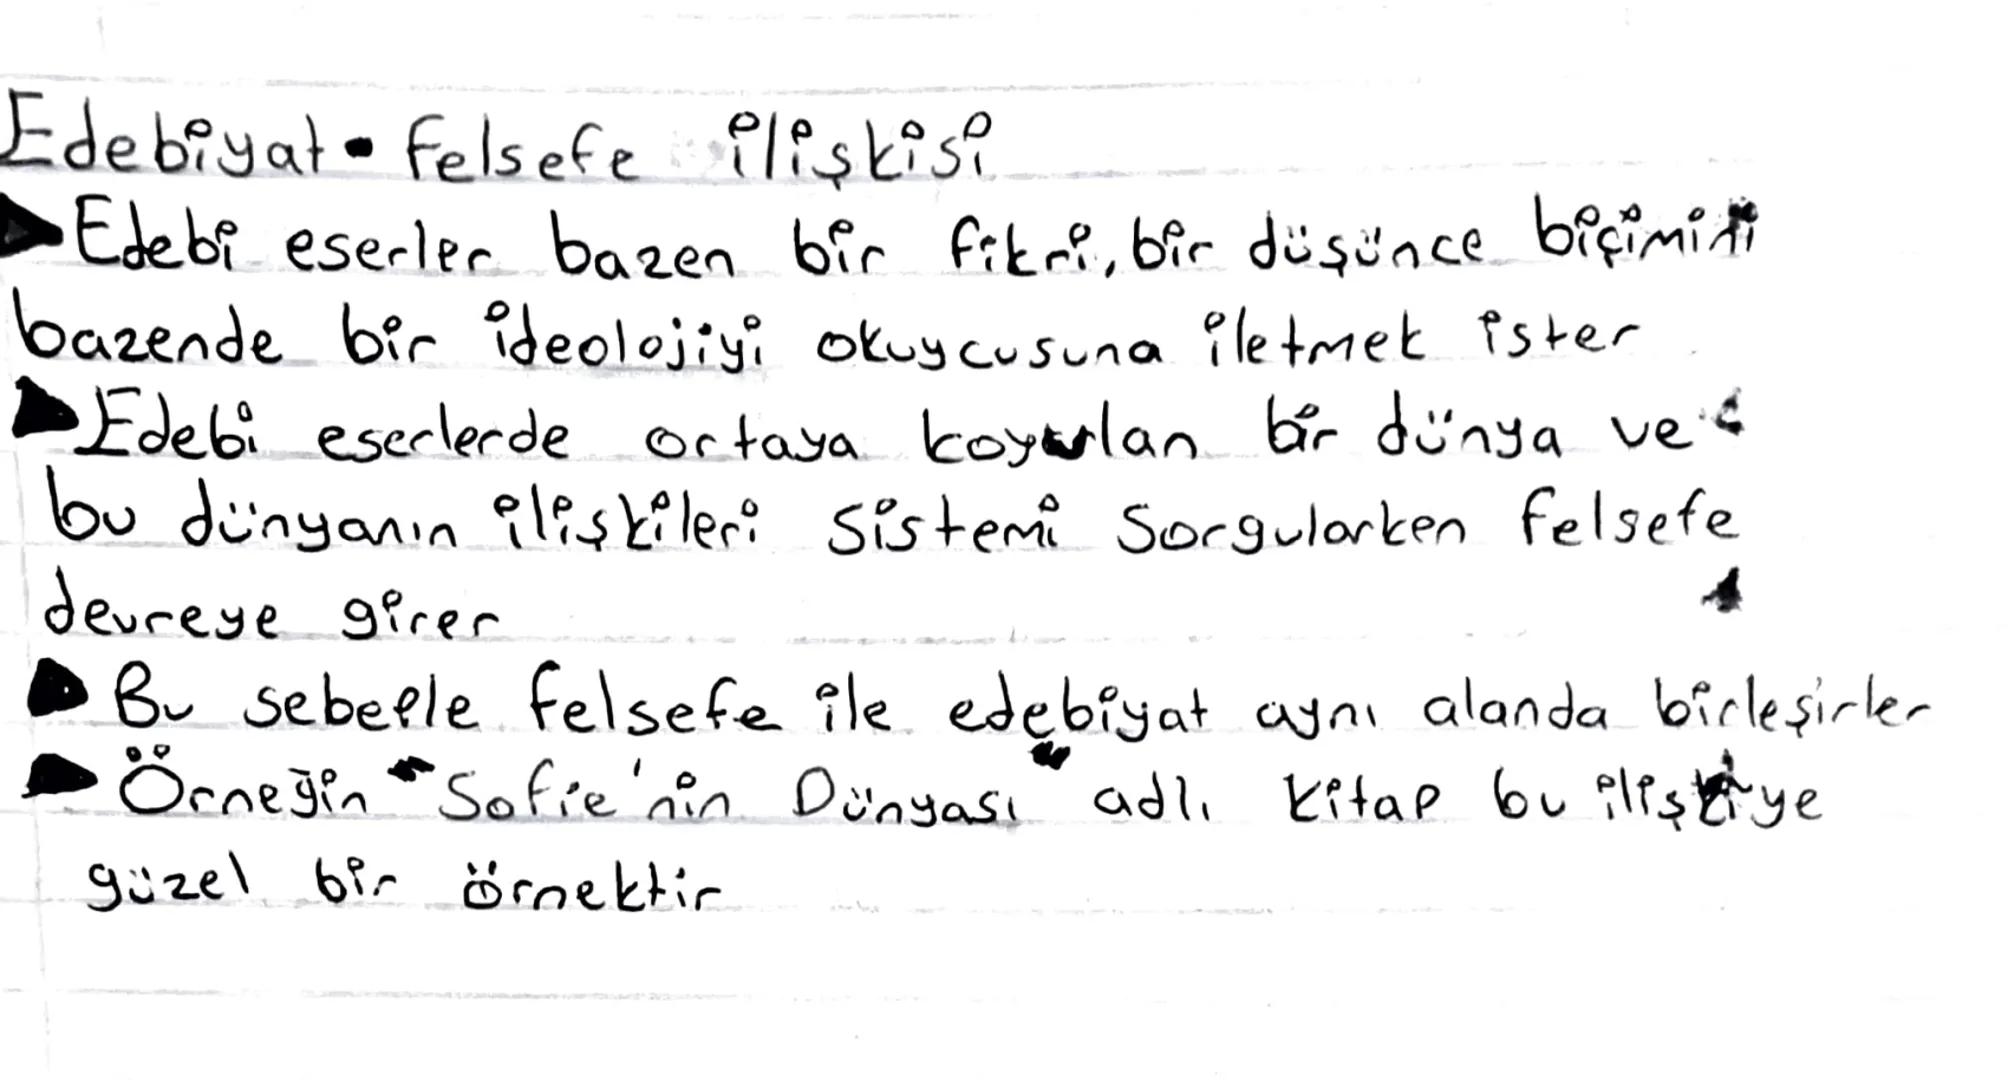 Edebiyat - Felsefe ilişkisi
▶Edebi eserler bazen bir fikri, bir düşünce biçimini
bazende bir ideolojiyi okuycusuna iletmek ister
▶Edebi eserlerde ortaya koyulan bir dünya ve
bu dünyanın ilişkileri sistemi sorgularken felsefe
devreye girer
▶ Bu sebeple felsefe ile edebiyat aynı alanda birleşirler
▶ Örneğin "Sofie'nin Dünyası" adlı kitap bu ilişkiye
güzel bir örnektir